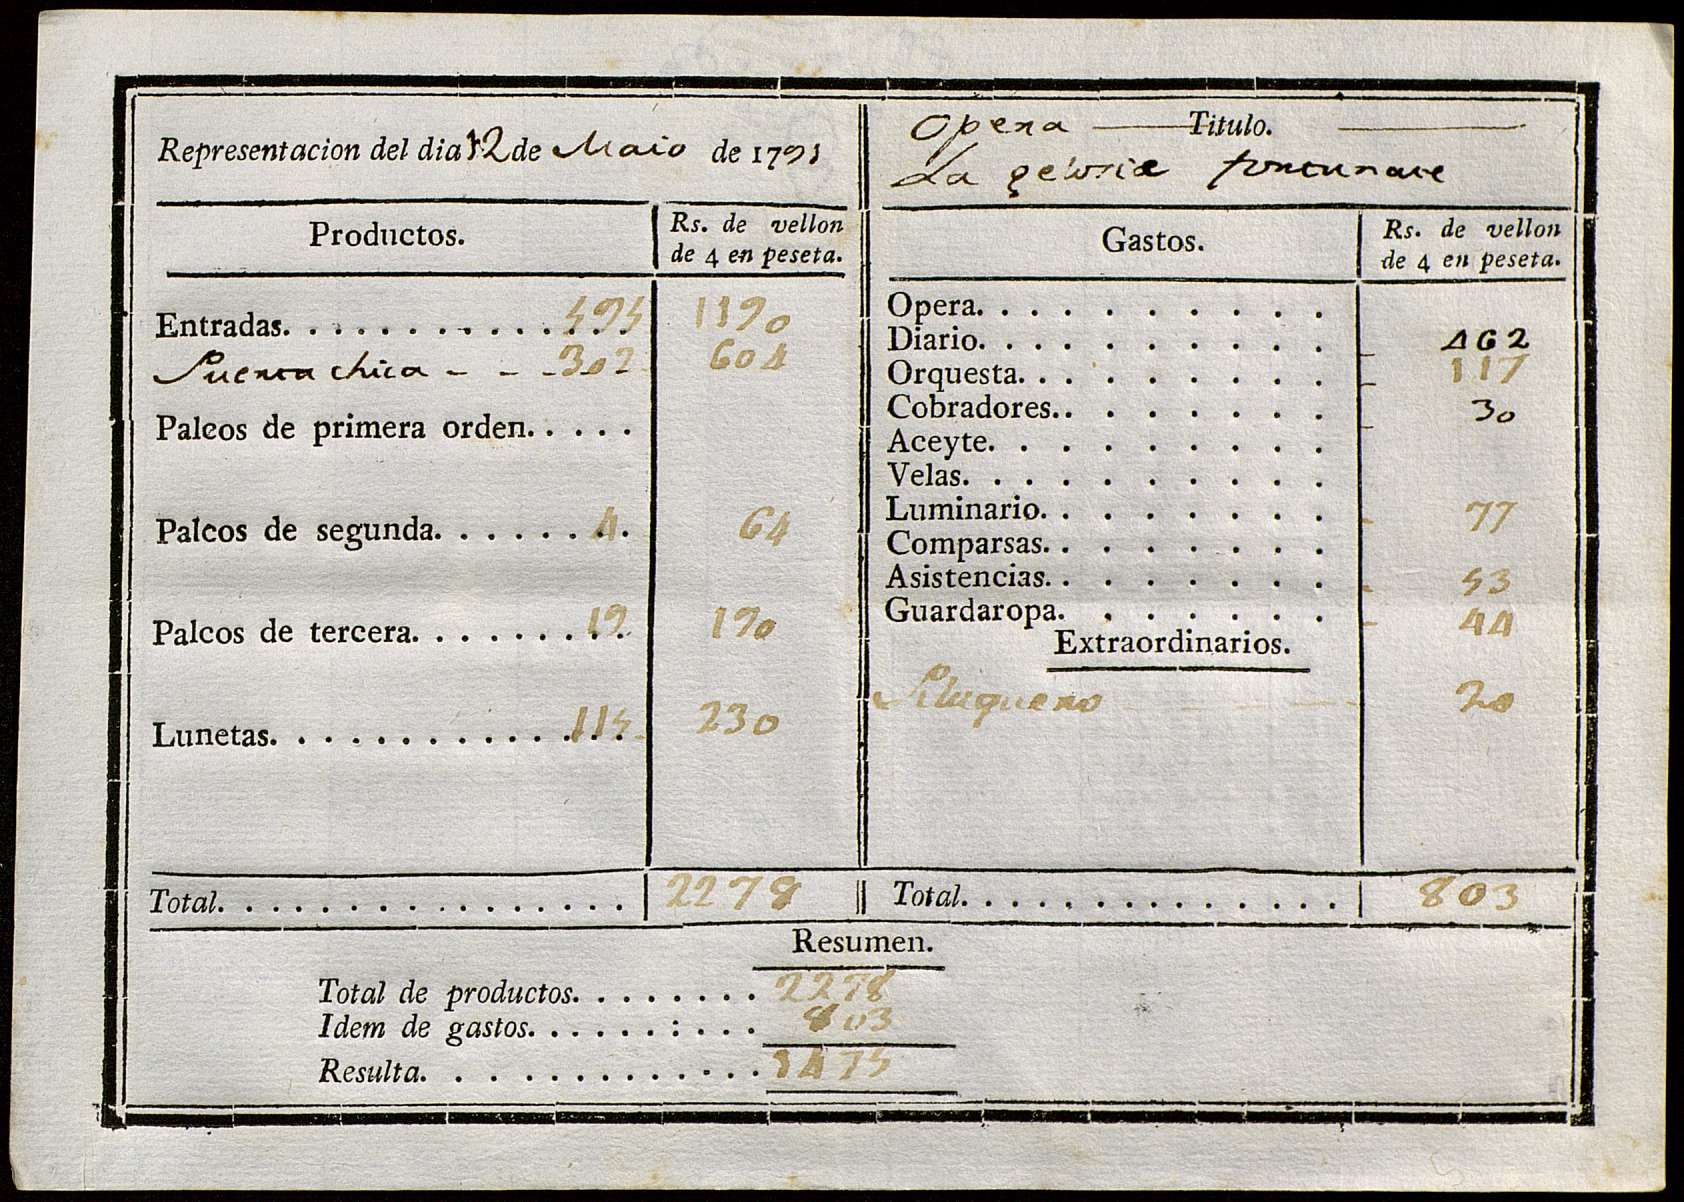 Representacion del dia 12 de Maio de 1791
Productos.
Rs. de vellon
de 4 en peseta.
Entradas. 595 1190
Puerta chica - - - 302 604
Palcos de primera orden.
Palcos de segunda. 4 64
Palcos de tercera. 19 190
Lunetas. 115 230
Total. 2278
Opera — Titulo. —
La gelosie fortunate
Gastos.
Rs. de vellon
de 4 en peseta.
Opera.
Diario. 462
Orquesta. 117
Cobradores. 30
Aceyte.
Velas.
Luminario. 77
Comparsas.
Asistencias. 53
Guardaropa. 44
Extraordinarios.
Peluquero 20
Total. 803
Resumen.
Total de productos. 2278
Idem de gastos. 803
Resulta. 1475